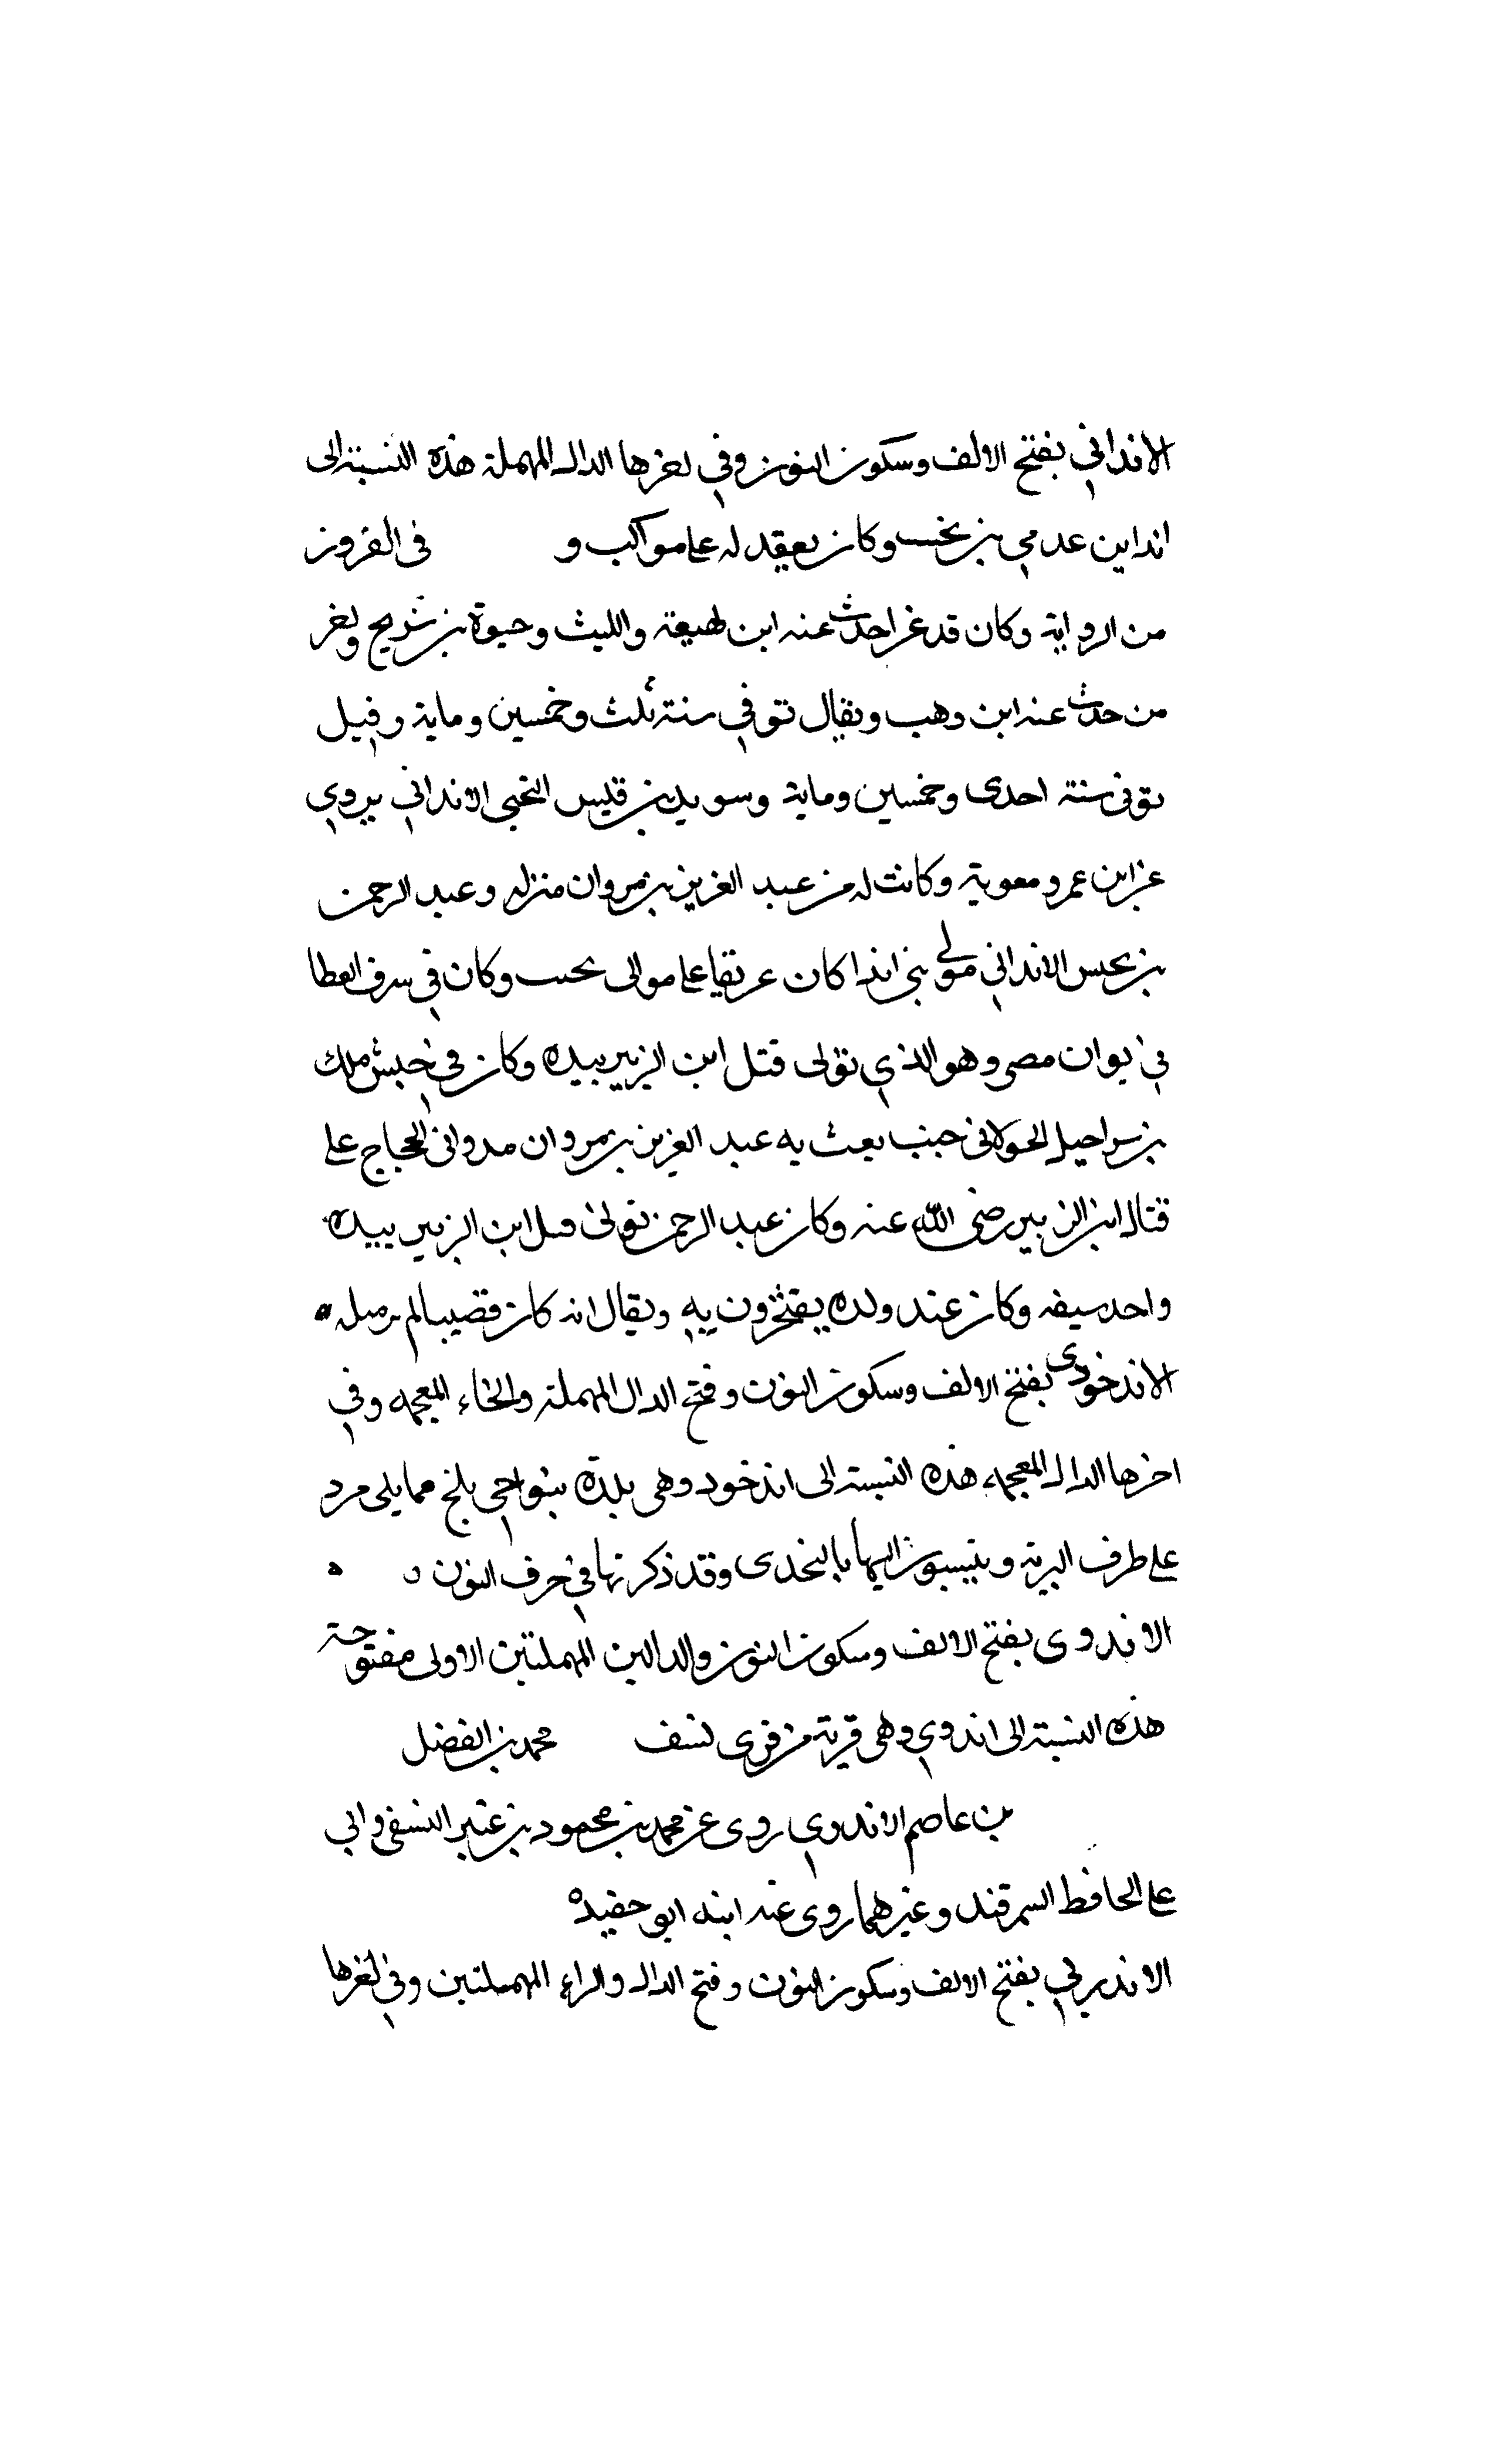 الانداني بفتح الالف وسكون النون وفي اخرها الدال المهملة هذه النسبة الى
اندا بن عدي بن تجيب وكان يعقد له على مواكب و في القرون
من الرواية وكان قد غزا حدث عنه ابن لهيعة والليث وحيوة بن شريح واخر
من حدث عنه ابن وهب ويقال توفي سنة ثلث وخمسين وماية وقيل
توفي سنة احدى وخمسين وماية وسويد بن قيس التجيبي الانداني يروي
عن ابن عمر ومعوية وكانت له من عبد العزيز بن مروان منزله وعبد الرحمن
بن يحنس الانداني مولى بني اندا كان عريفا على موالى تجيب وكان في شرف العطا
في ديوان مصر وهو الذي تولى قتل ابن الزبير بيده وكان في جيش ملك
بن سراحيل الخولاني حين بعث به عبد العزيز بن مروان الحجاج على
قتال ابن الزبير رضى الله عنه وكان عبد الرحمن تولى قتل ابن الزبير بيده
واحد سيفه وكان عند ولده يفتخرون به ويقال انه كان قضيبا لم ير مثله
الاندخودى بفتح الالف وسكون النون وفتح الدال المهملة والخاء المعجمه وفي
اخرها الدال المعجمه هذه النسبة الى اندخود وهى بلدة بنواحي بلخ مما يلى مرو
على طرف البرية وينسبون اليها بالنخدى وقد ذكرتها في حرف النون
الاندوى بفتح الالف وسكون النون والدالين المهملتين الاولى مفتوحة
هذه النسبة الى اندوي وهى قرية من قرى نسف محمد بن الفضل
بن عاصم الاندوي روى عن محمد بن محمود بن عنبر النسفى وابي
على الحافظ السمرقند وغيرهما روى عنه ابنه ابو حفيده
الاندربي بفتح الالف وسكون النون وفتح الدال والراء المهملتين وفي اخرها